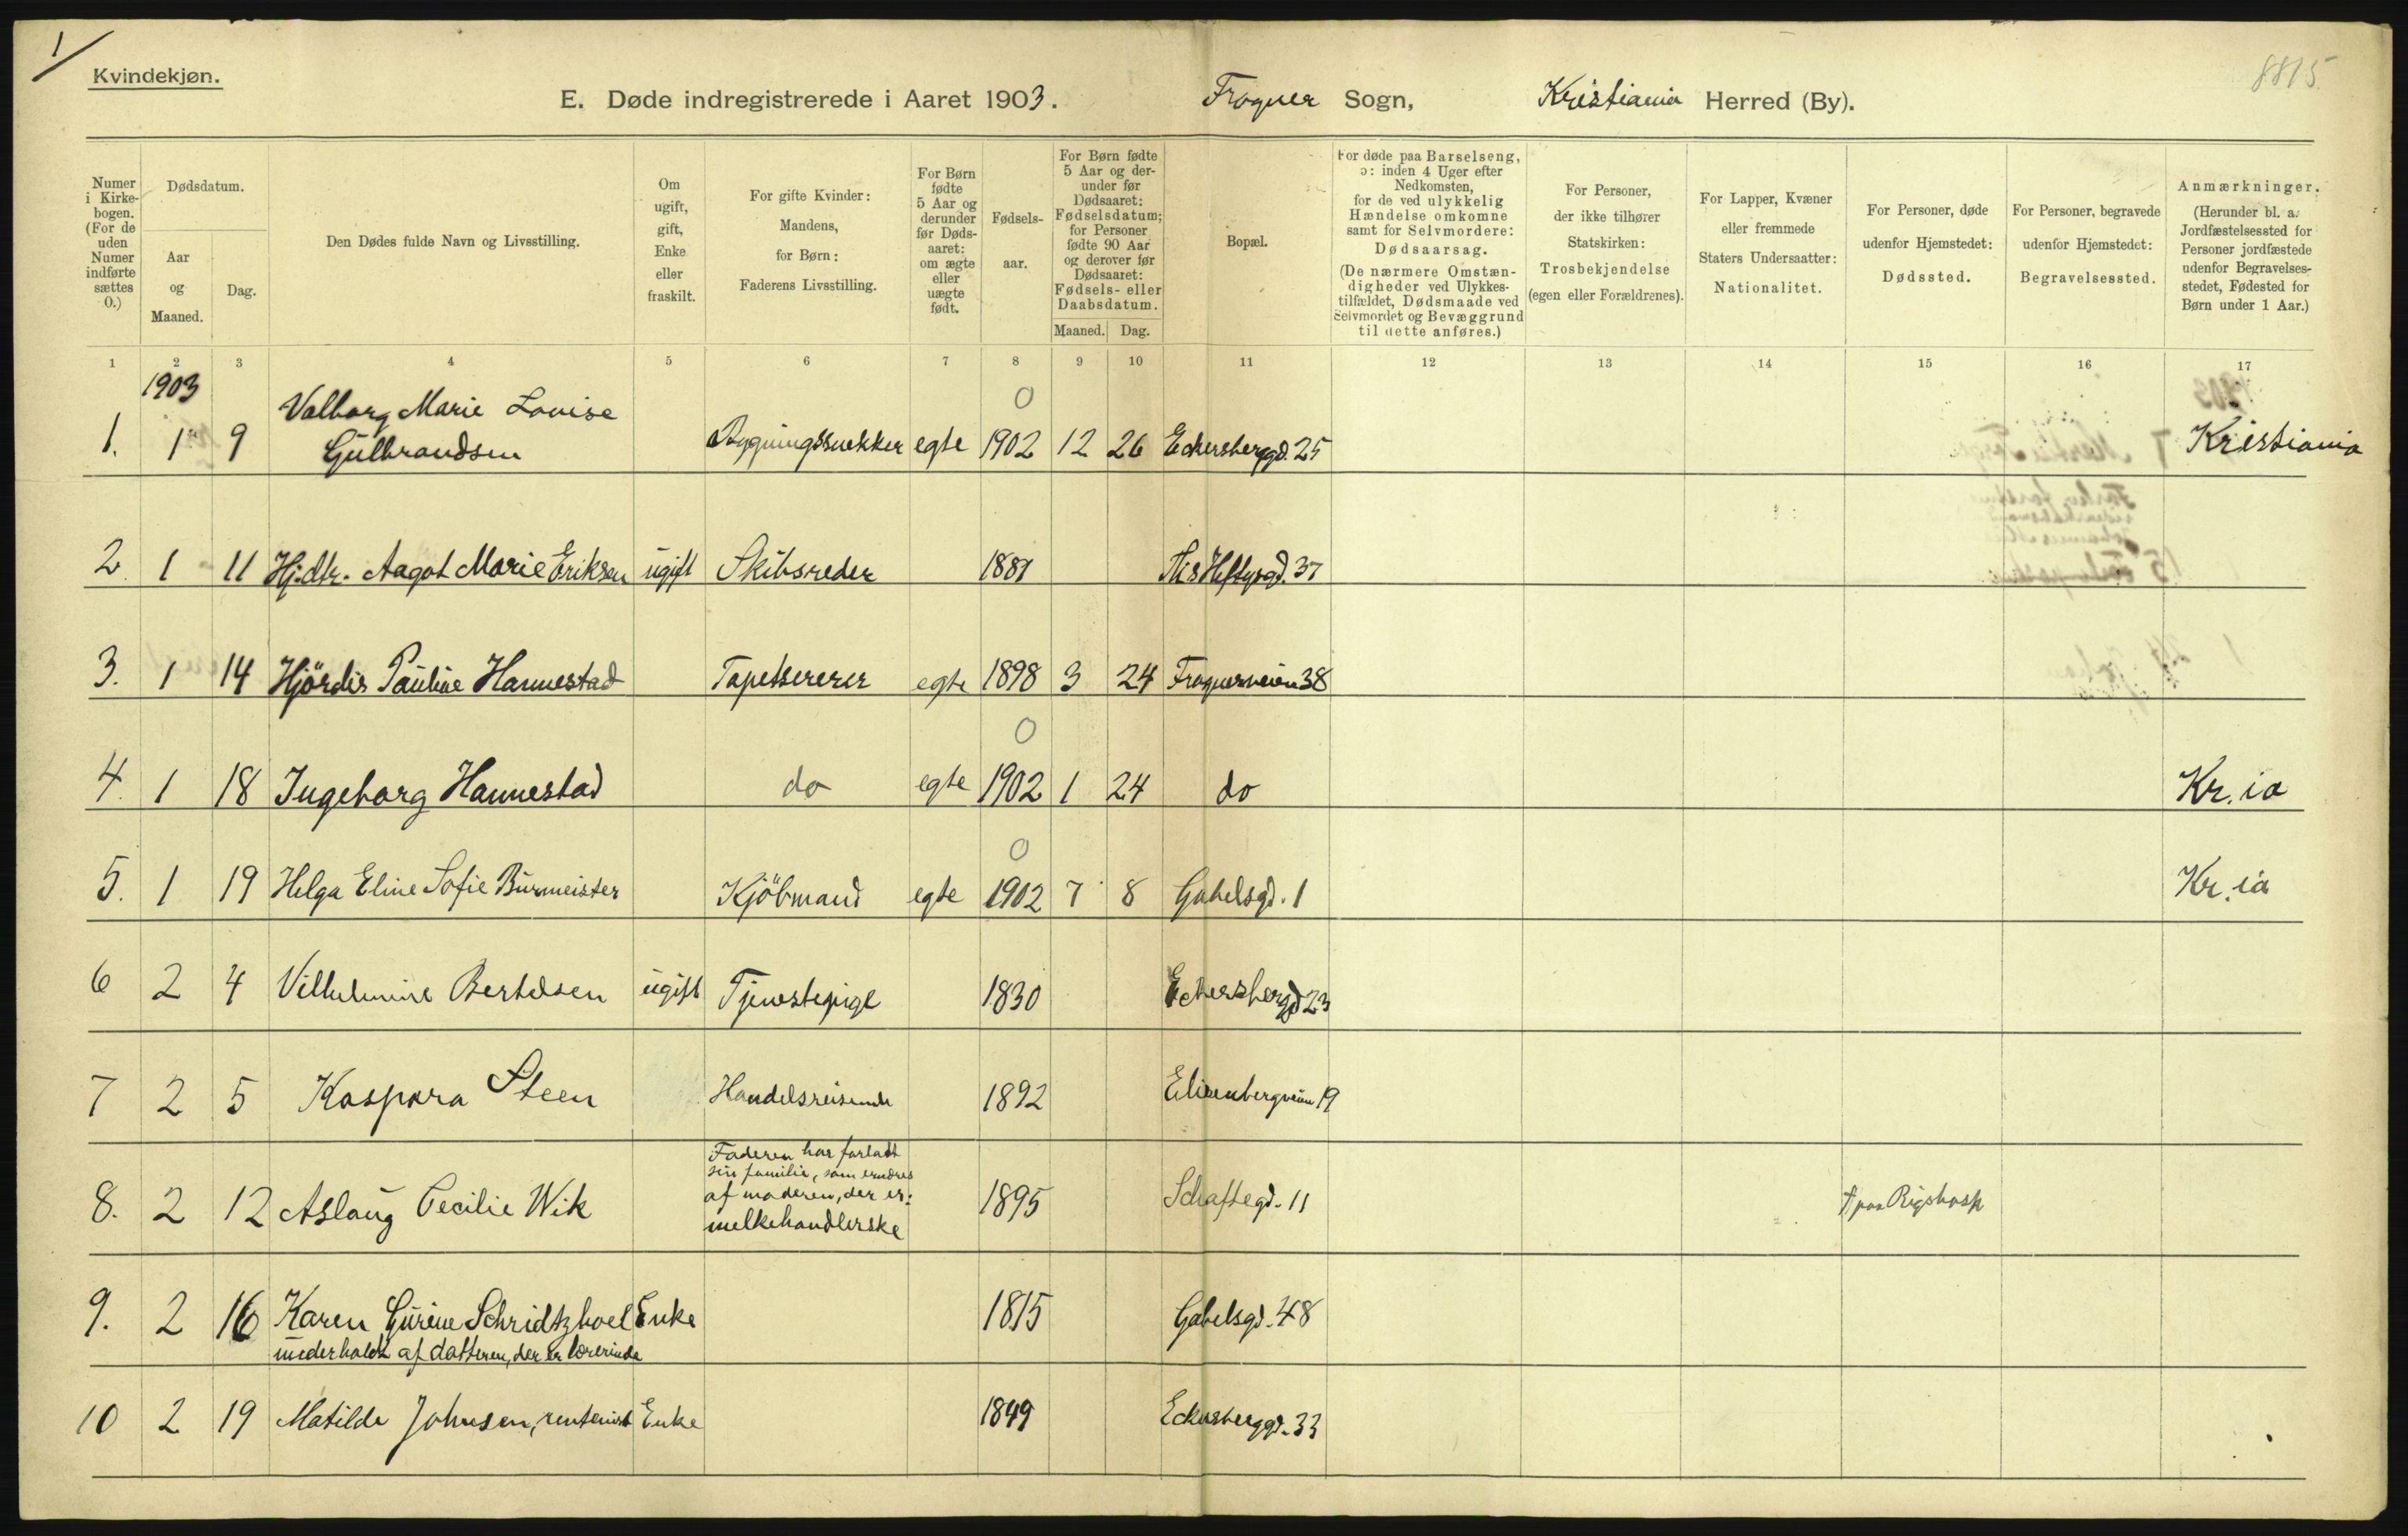 1/
Kvindekjøn.
8815
E. Døde indregistrerede i Aaret 1903. Frogner Sogn, Kristiania Herred (By).
Numer i Kirkebogen. (For de uden Numer indførte sættes 0.)
Dødsdatum.
Aar og Maaned.
Dag.
Den Dødes fulde Navn og Livsstilling.
Om ugift, gift, Enke eller fraskilt.
For gifte Kvinder: Mandens, for Børn: Faderens Livsstilling.
For Børn fødte 5 Aar og derunder før Dødsaaret: om ægte eller uægte født.
Fødselsaar.
For Børn fødte 5 Aar og derunder før Dødsaaret: Fødselsdatum; for Personer fødte 90 Aar og derover før Dødsaaret: Fødsels- eller Daabsdatum.
Maaned. Dag.
Bopæl.
For døde paa Barselseng, ɔ: inden 4 Uger efter Nedkomsten, for de ved ulykkelig Hændelse omkomne samt for Selvmordere: Dødsaarsag. (De nærmere Omstændigheder ved Ulykkestilfældet, Dødsmaade ved Selvmordet og Bevæggrund til dette anføres.)
For Personer, der ikke tilhører Statskirken: Trosbekjendelse (egen eller Forældrenes).
For Lapper, Kvæner eller fremmede Staters Undersaatter: Nationalitet.
For Personer, døde udenfor Hjemstedet: Dødssted.
For Personer, begravede udenfor Hjemstedet: Begravelsessted.
Anmærkninger. (Herunder bl. a. Jordfæstelsessted for Personer jordfæstede udenfor Begravelsesstedet, Fødested for Børn under 1 Aar.)
1 2 3 4 5 6 7 8 9 10 11 12 13 14 15 16 17
1903
Valborg Marie Louise 0
1. 1 9 Gulbrandsen Bygningssnekker egte 1902 12 26 Eckersberggd. 25 Kristiania
2 1 11 Hj.dtr. Aagot Marie Eriksen ugift Skibsreder 1881 Ths Heftysgd. 37
3. 1 14 Hjördis Pauline Hannestad Tapetserer egte 1898 3 24 Frognerveien 38
0
4. 1 18 Ingeborg Hannestad do egte 1902 1 24 do Kr.ia
0
5. 1 19 Helga Eline Sofie Burmeister Kjöbmand egte 1902 7 8 Gabelsgd. 1 Kr.ia
6 2 4 Vilhelmine Bertelsen ugift Tjenestepige 1830 Eckersberggd 23
7 2 5 Kaspara Steen Handelsreisende 1892 Elisenbergveien 19
Faderen har forladt
sin familie, som ernæres
af moderen, der er:
8. 2 12 Aslaug Cecilie Wik melkehandlerske 1895 Schaftegd. 11 † paa Rigshosp
9. 2 16 Karen Gurine Schridtzhoel Enke 1815 Gabelsgd. 48
underholdt af datteren, der er lærerinde
10 2 19 Matilde Johnsen, rentenist Enke 1849 Eckersberggd. 33